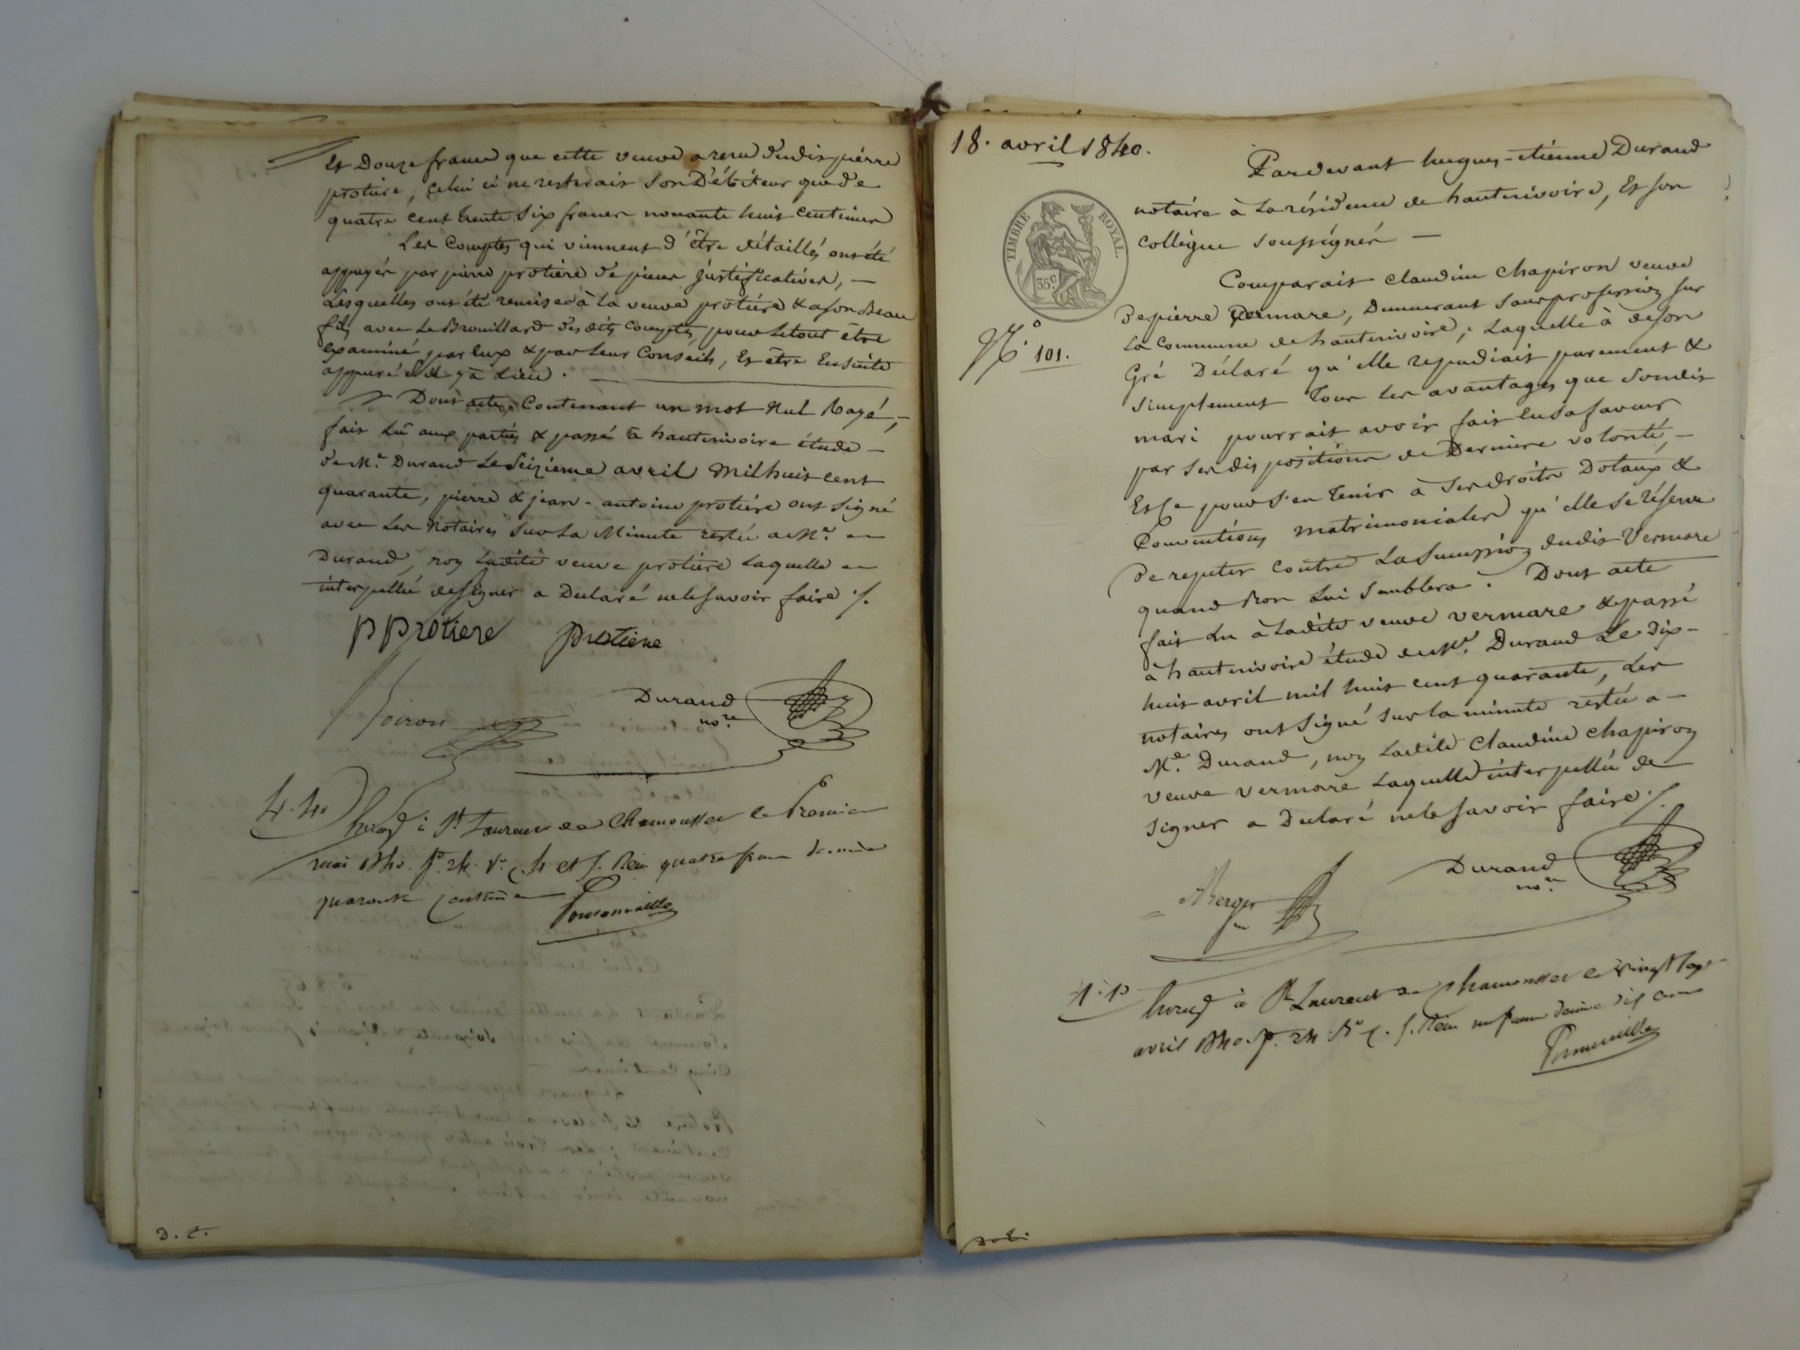 et Douze francs que cette veuve a recu dudit pierre
protière, celui ci ne resterait son Débiteur que de
quatre cent trente six francs nonante huit centimes
Les Comptes qui viennent d'être détaillés ont été
appuyés par pierre protière de pieces justificatives, —
Lesquelles ont été remises à la veuve protière & a son Beau
fils avec Le Brouillard desdits comptes, pour le tout être
examiné par Eux & par leur Conseils, Et être Ensuite
appuré s'il y a Lieu.
Dont acte, Contenant un mot Nul Rayé, —
fait Lû aux parties & passé à hauterivoire étude —
de Me. Durand Le Seizieme avril Mil huit cent
quarante, pierre & jean-antoine protière ont Signé
avec Les Notaires Sur La Minute restée a Me.
Durand, non Ladite veuve protière Laquelle
interpellée de Signer a Déclaré ne le Savoir faire ./.
P Protiere protiere
Durand
nore
4.40
à St Laurent de Chamousset le Premier
mai 1840. fo. 24. Vo. C. 4 et 5. Reçu quatre francs
quarante centimes
D. E.
18. avril 1840.
TIMBRE ROYAL.
35 c.
No 101.
Pardevant hugues-étienne Durand
notaire à La résidence de hauterivoire, Et son
collègue Soussignés —
Comparait Claudine Chapiron veuve
de pierre Vermare, Demeurant Sans profession Sur
La Commune de hauterivoire; Laquelle à de son
Gré Déclaré qu'elle repudiait purement &
Simplement Tous Les avantages que Sondit
mari pourrait avoir fait En Sa faveur
par Ses dispositions de Derniere volonté, —
Et ce pour S'en Tenir à Ses droits Dotaux &
Conventions matrimoniales qu'elle Se réserve
de repeter contre La Succession dudit Vermare
quand Bon Lui Semblera. Dont acte
fait Lu à Ladite veuve Vermare & passé
à hauterivoire étude de Me. Durand Le Dix-
huit avril mil huit cent quarante, Les
notaires ont Signé Sur la minute restée a —
Me. Durand, non Ladite Claudine Chapiron
veuve Vermare Laquelle interpellée de
Signer a Déclaré ne le Savoir faire ./.
Berger Durand
nore
1.10
à St Laurent de Chamousset le vingt Sept
avril 1840. fo. 24 Ro C. 5. Reçu un franc dixième dix cent